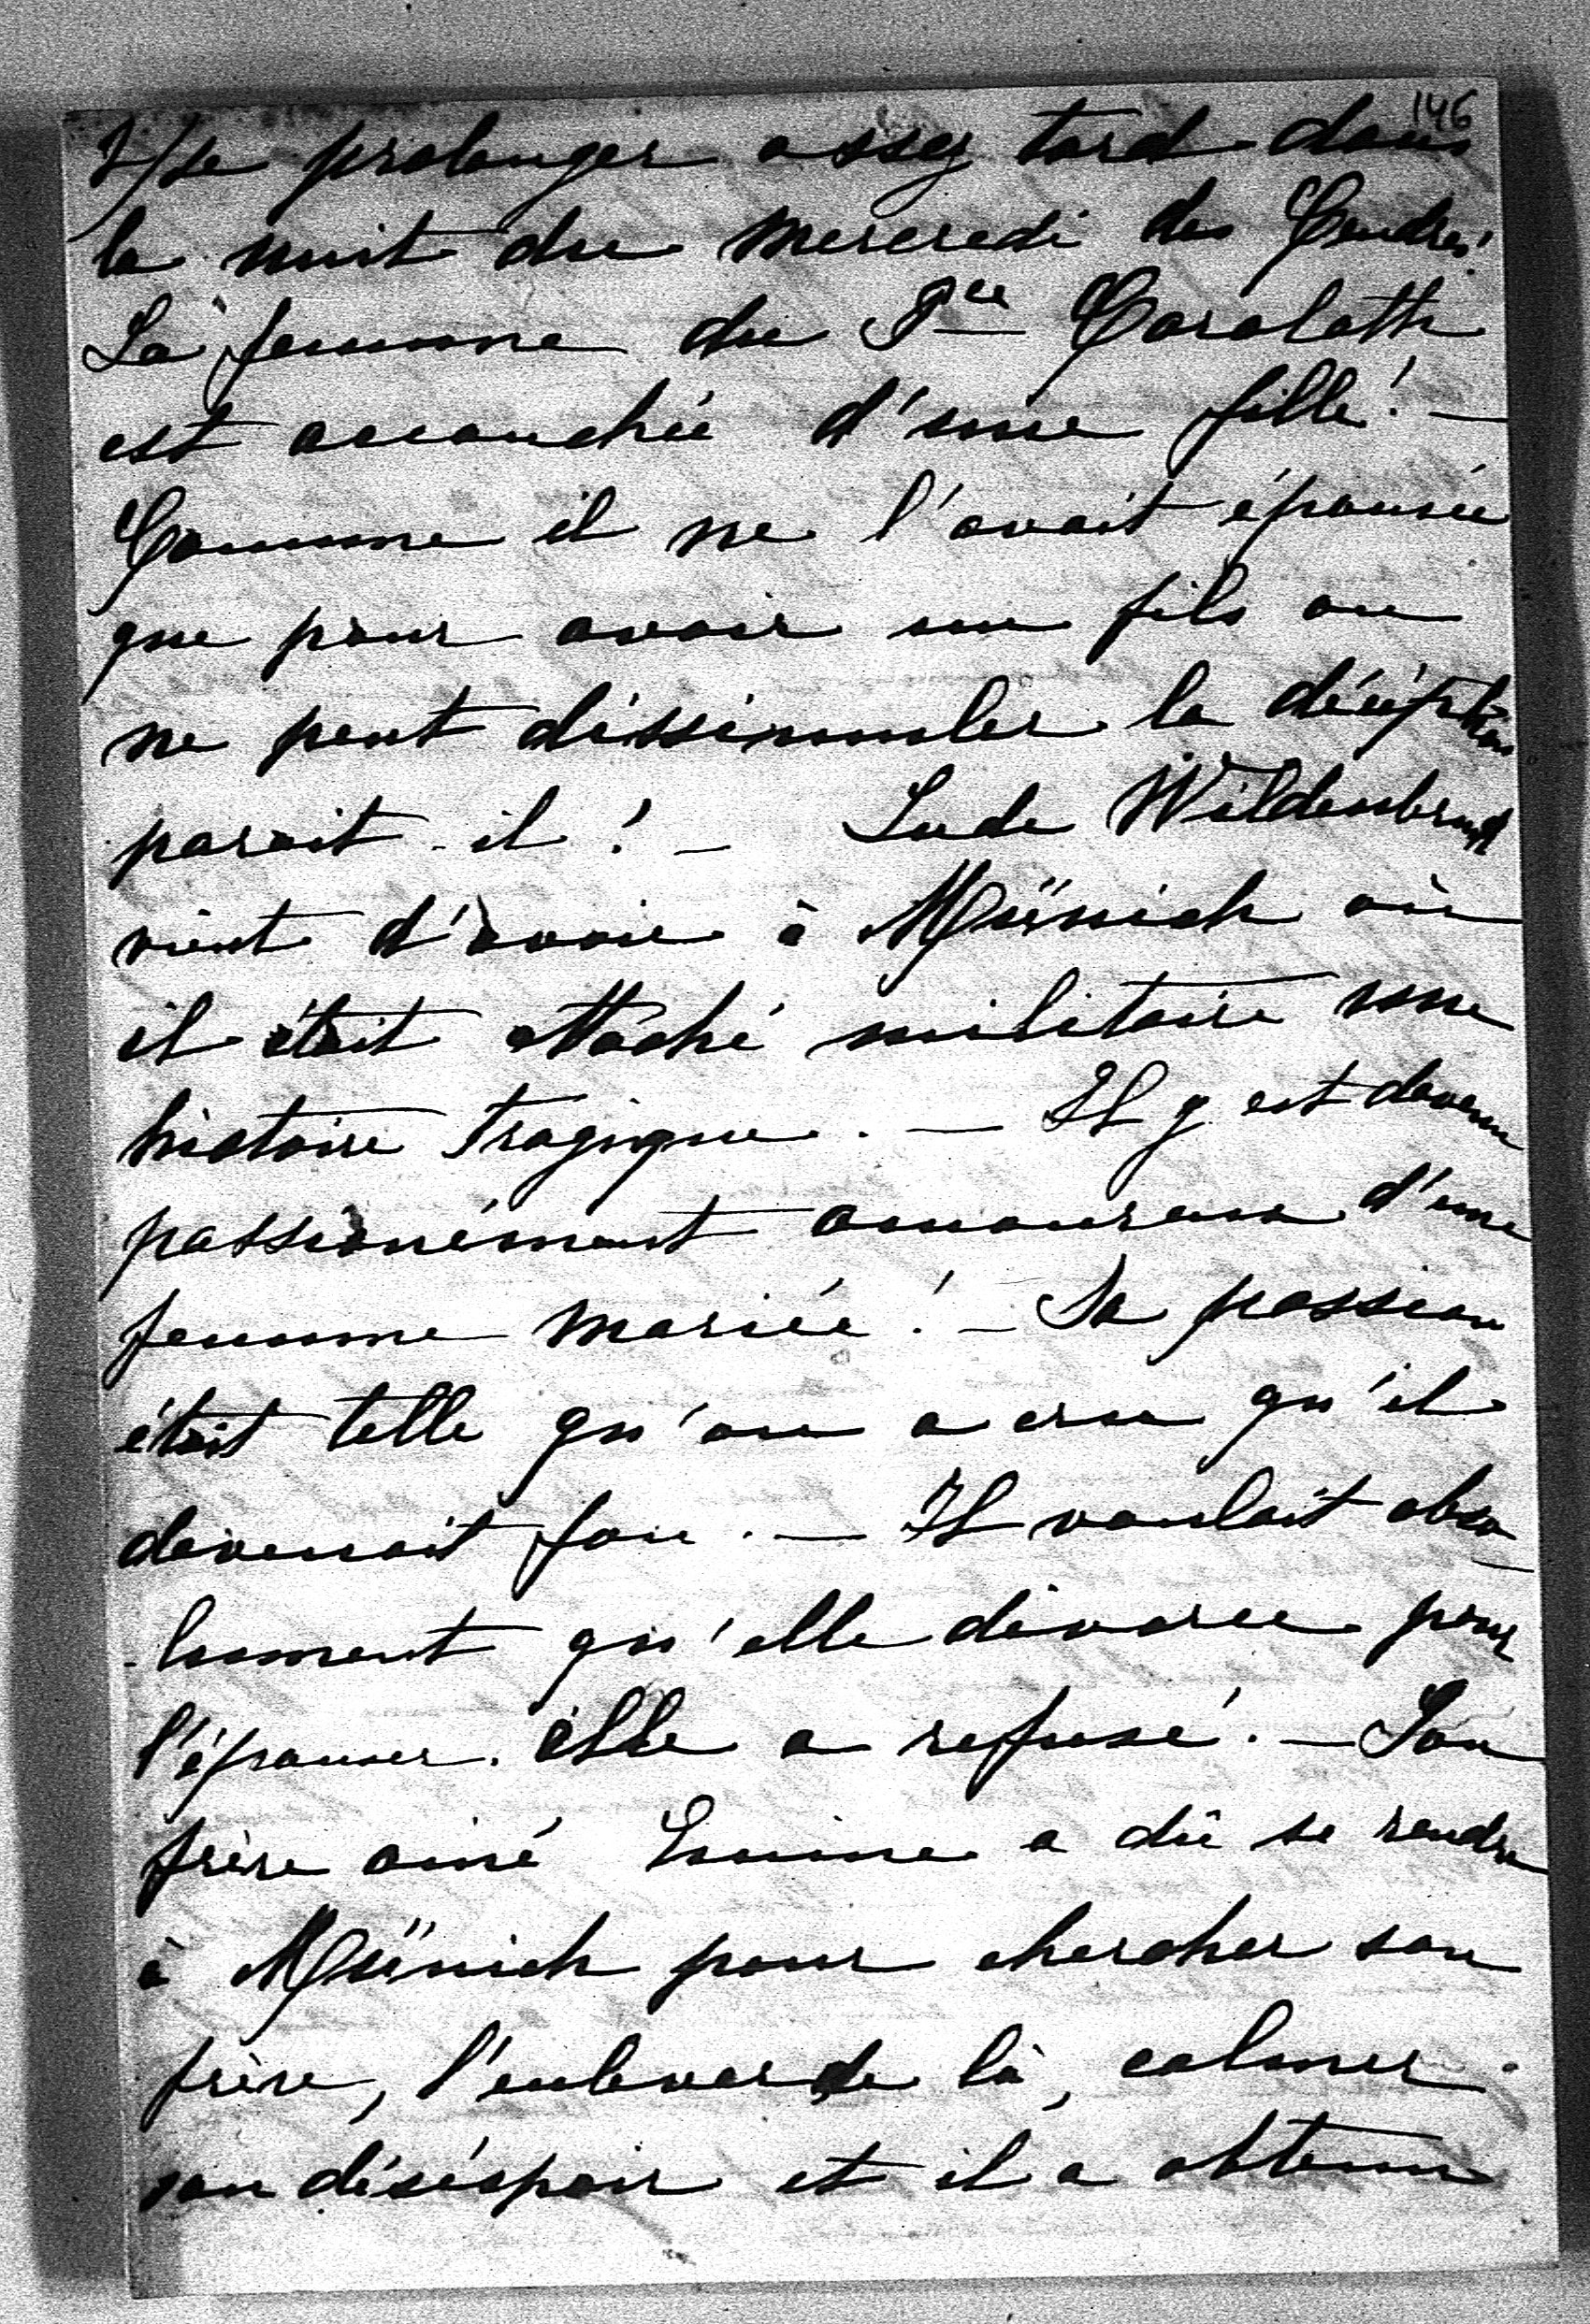 146
2/se prolonger assez tard dans
la nuit du mercredi des Cendres!
La femme du Pce Carolath
est accouchée d'une fille! —
Comme il ne l'avait épousée
que pour avoir un fils on
ne peut dissimuler la déception
parait-il! — Lude Wildenbruch
vient d'avoir à Münich où
il était attaché militaire une
histoire tragique. — Il y est devenu
passionément amoureux d'une
femme mariée! — Sa passion
était telle qu'on a cru qu'il
devenait fou. — Il voulait abso-
-lument qu'elle divorce pour
l'épouser. élle a refusé. — Son
frère ainé a dû se rendre
à Münich pour chercher son
frère, l'enlever de là, calmer
son déséspoir et il a obtenu